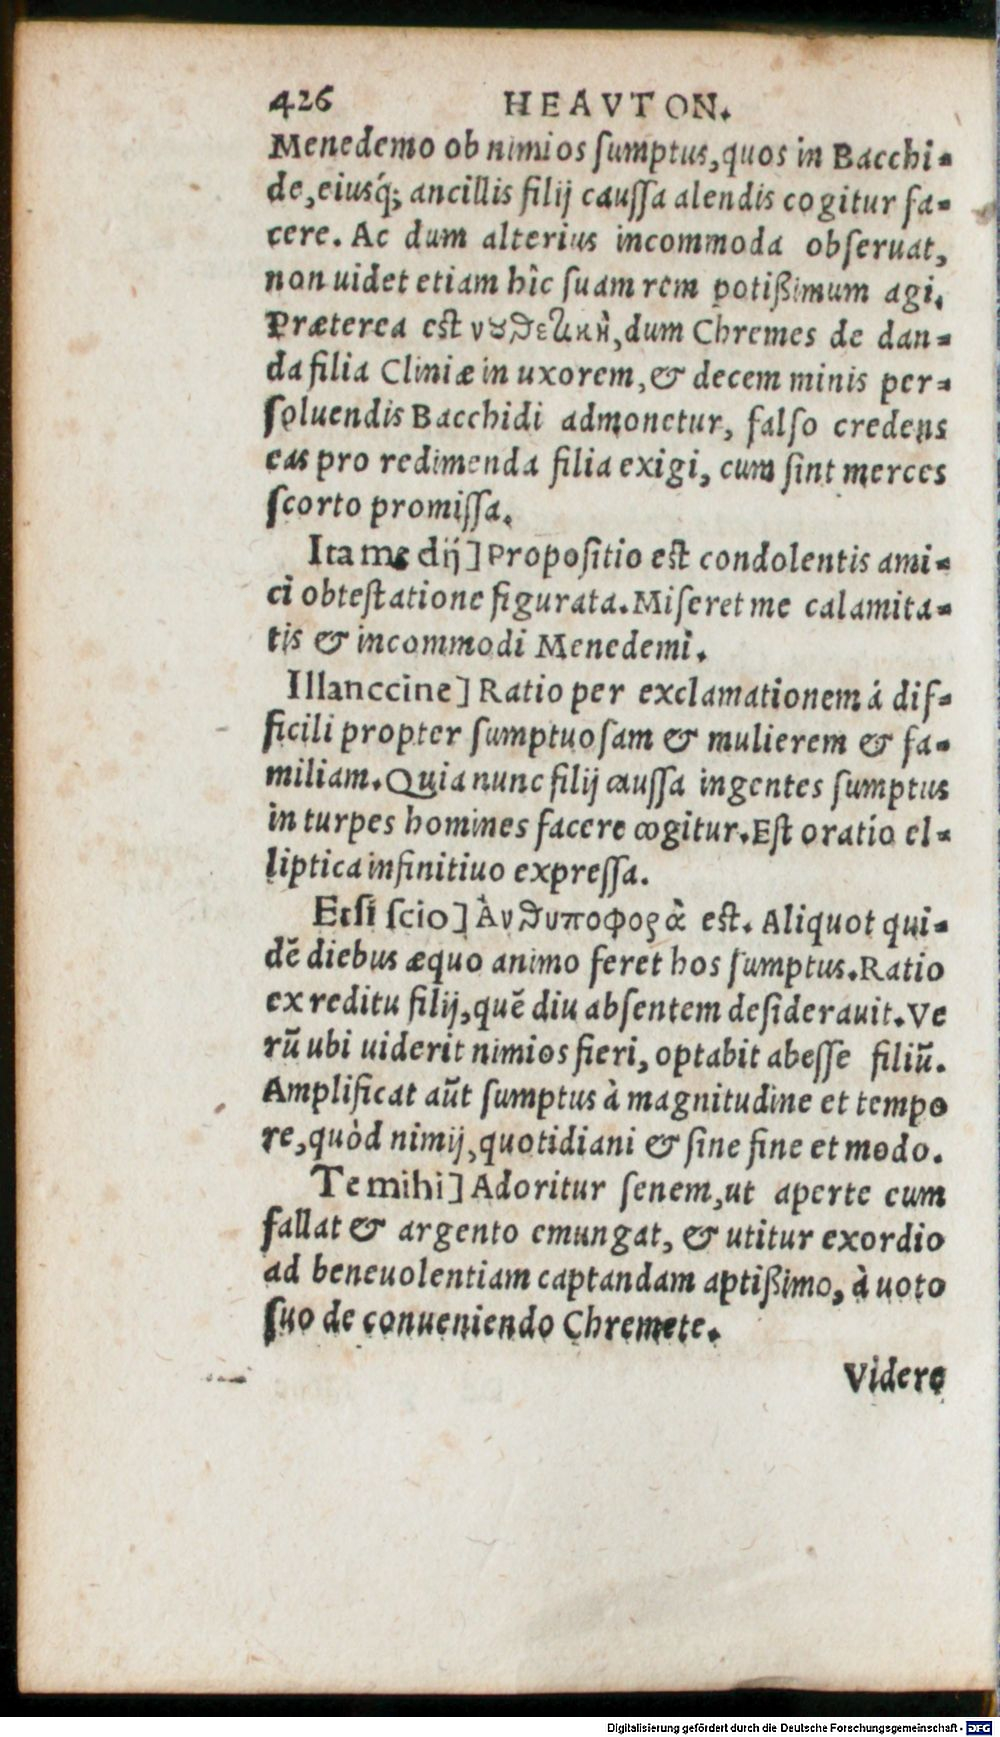 426 HEAVTON.
Menedemo ob nimios ſumptus, quos in Bacchi-
de, eiusq́; ancillis filij cauſſa alendis cogitur fa-
cere. Ac dum alterius incommoda obſeruat,
non uidet etiam hîc ſuam rem potißimum agi.
Præterea est νȣθετικὴ, dum Chremes de dan-
da filia Cliniæ in uxorem, & decem minis per-
ſoluendis Bacchidi admonetur, falſo credens
eas pro redimenda filia exigi, cum ſint merces
ſcorto promiſſa.
Ita me dij] Propoſitio est condolentis ami-
ci obteſtatione figurata. Miſeret me calamita-
tis & incommodi Menedemi.
Illanccine] Ratio per exclamationem á dif-
ficili propter ſumptuoſam & mulierem & fa-
miliam. Quia nunc filij cauſſa ingentes ſumptus
in turpes homines facere cogitur. Eſt oratio el-
liptica infinitiuo expreſſa.
Etſi ſcio] Ἀνθυποφορὰ est. Aliquot qui-
dē diebus æquo animo feret hos ſumptus. Ratio
ex reditu filij, quē diu abſentem deſiderauit. Ve
rū ubi uiderit nimios fieri, optabit abeſſe filiū.
Amplificat aūt ſumptus à magnitudine et tempo
re, quòd nimij, quotidiani & ſine fine et modo.
Te mihi] Adoritur ſenem, ut aperte eum
fallat & argento emungat, & utitur exordio
ad beneuolentiam captandam aptißimo, à uoto
ſuo de conueniendo Chremete.
Videre
Digitalisierung gefördert durch die Deutsche Forschungsgemeinschaft - DFG